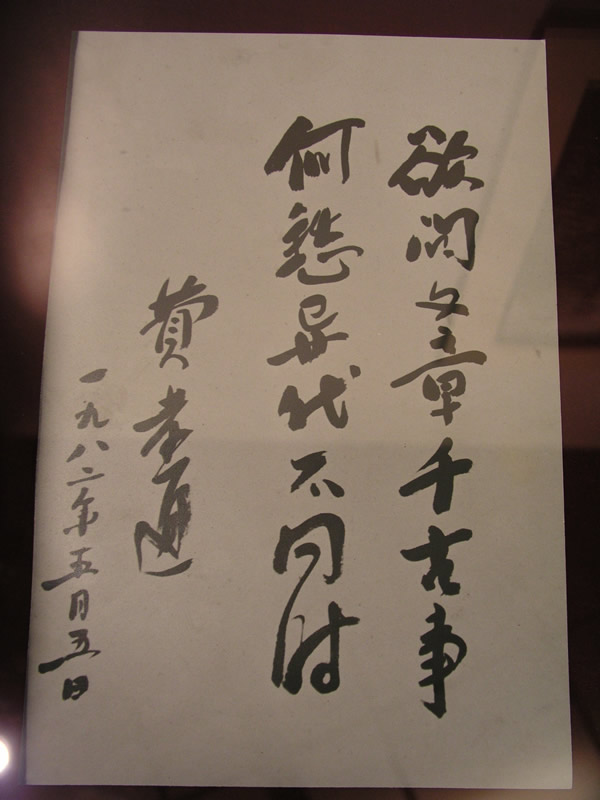 欲问文章千古事
何愁异代不同时
费孝通
一九八二年五月五日